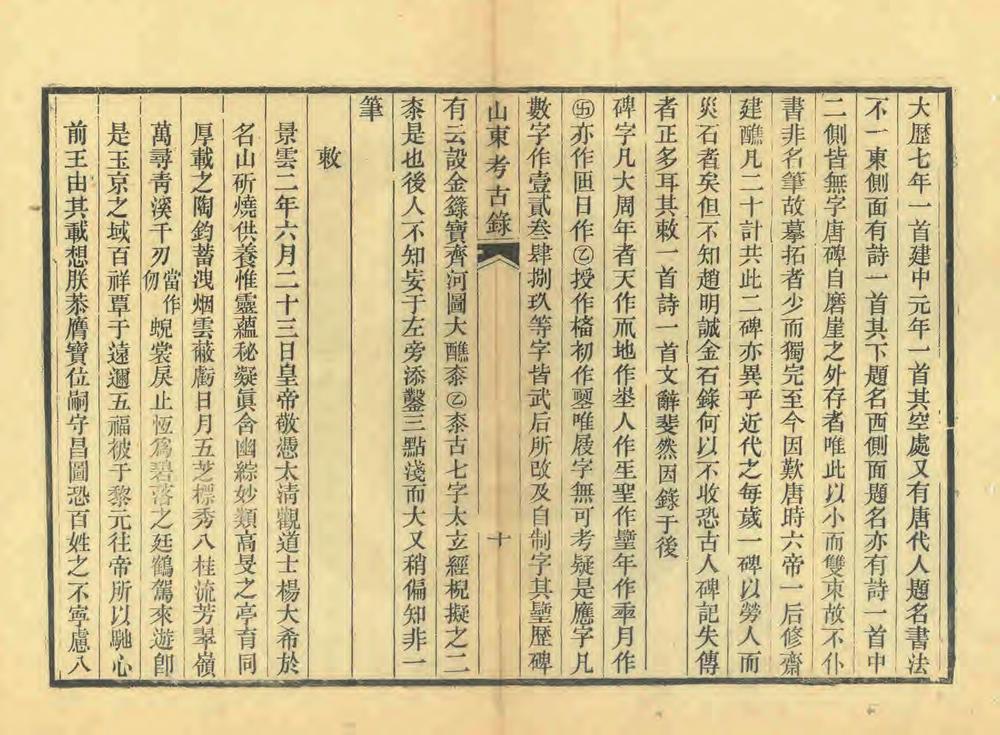 大歷七年一首建中元年一首其空處又有唐代人題名書法
不一東側面有詩一首其下題名西側面題名亦有詩一首中
二側皆無字唐碑自磨崖之外存者唯此以小而雙束故不仆
書非名筆故摹拓者少而獨完至今因歎唐時六帝一后修齋
建醮凡二十計共此二碑亦異乎近代之每歲一碑以勞人而
災石者矣但不知趙明誠金石錄何以不收恐古人碑記失傳
者正多耳其敕一首詩一首文辭斐然因錄于後
碑字凡大周年者天作𠀑地作埊人作𤯔聖作𡔈年作𠡦月作
卍亦作𠥱日作𡆠授作𥠢初作𡔈唯㞡字無可考疑是應字凡
數字作壹貳叁肆捌玖等字皆武后所改及自制字其𡔈歷碑
山東考古錄
十
有云設金籙寶齊河圖大醮桼𡆠桼古七字太玄經棿擬之二
桼是也後人不知妄于左旁添鑿三點淺而大又稍偏知非一
筆
敕
景雲二年六月二十三日皇帝敬憑太清觀道士楊大希於
名山斫燒供養惟靈蘊秘凝眞含幽綜妙類高旻之亭育同
厚載之陶鈞蓄洩烟雲蔽虧日月五芝標秀八桂流芳翠嶺
萬尋青溪千刃當作仞蜺裳戾止恆爲碧落之廷鶴駕來遊卽
是玉京之域百祥覃于遠邇五福被于黎元往帝所以馳心
前王由其載想朕恭膺寶位嗣守昌圖恐百姓之不寧慮八